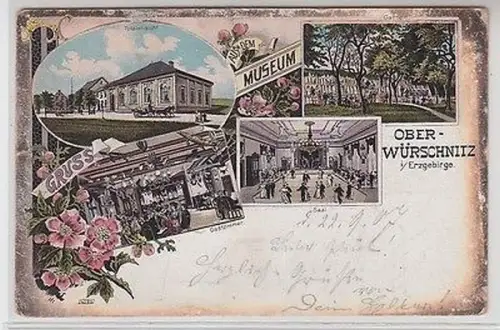 Totalansicht
GRUSS
AUS DEM
MUSEUM
OBER-
WÜRSCHNITZ
i/Erzgebirge.
Gastzimmer
Saal
d. 22.9.97
Herzliche Grüße
von
Dein